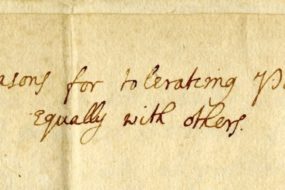 asons for tolerating Pa
equally with others.